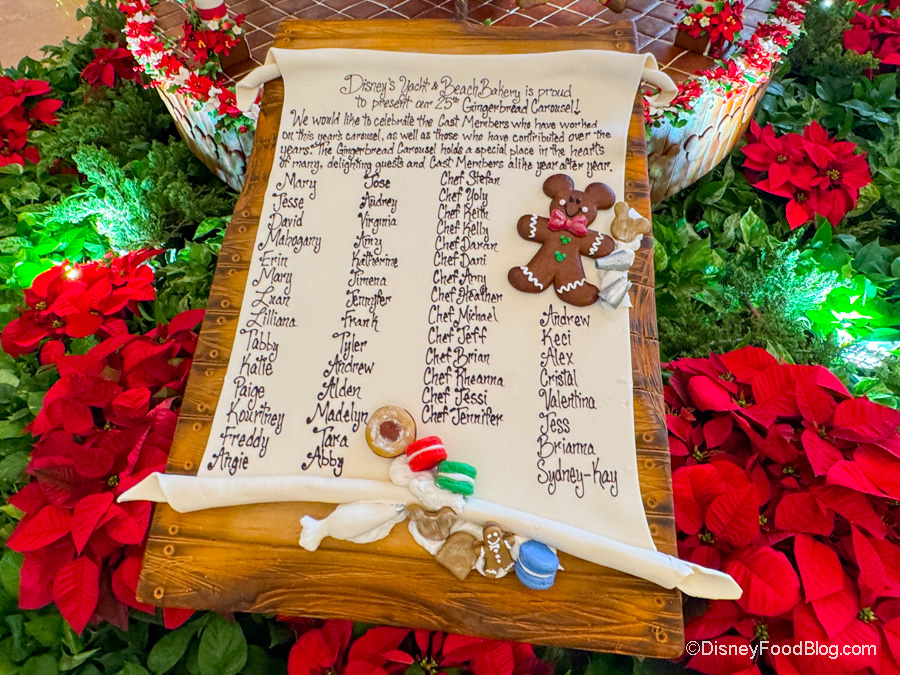 Disney's Yacht & Beach Bakery is proud
to present our 25th Gingerbread Carousel!
We would like to celebrate the Cast Members who have worked
on this year's carousel, as well as those who have contributed over the
years. The Gingerbread Carousel holds a special place in the hearts
of many, delighting guests and Cast Members alike year after year.
Mary
Jesse
David
Mahagany
Erin
Mary
Luan
Lilliana
Tabby
Katie
Paige
Kourtney
Freddy
Angie
Jose
Audrey
Virginia
Amy
Katherine
Jimena
Jennifer
Frank
Tyler
Andrew
Alden
Madelyn
Tara
Abby
Chef Stefan
Chef Yoly
Chef Keith
Chef Kelly
Chef Daran
Chef Dani
Chef Amy
Chef Heather
Chef Michael
Chef Jeff
Chef Brian
Chef Rheanna
Chef Jessi
Chef Jennifer
Andrew
Keci
Alex
Cristal
Valentina
Jess
Brianna
Sydney-Kay
©DisneyFoodBlog.com